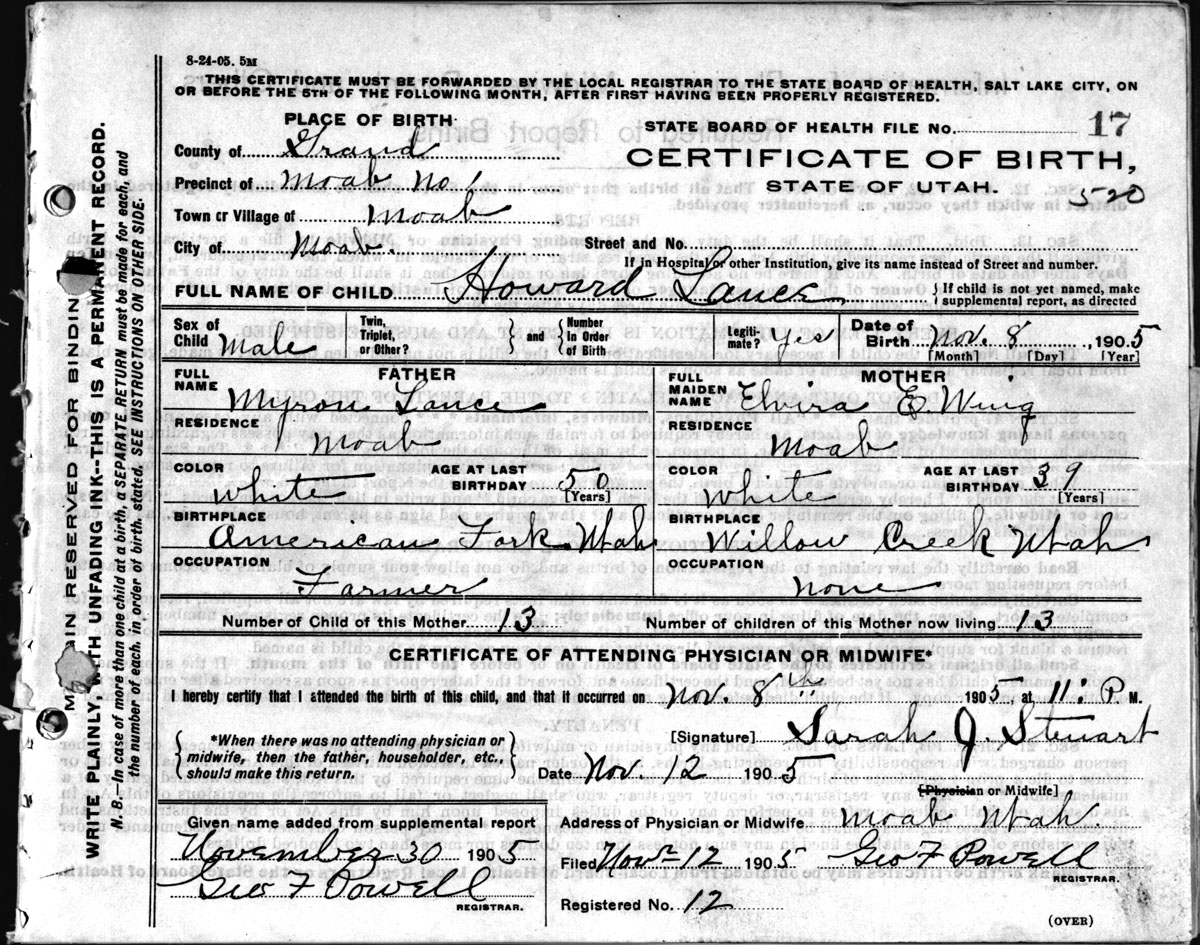 8-24-05. 5M
THIS CERTIFICATE MUST BE FORWARDED BY THE LOCAL REGISTRAR TO THE STATE BOARD OF HEALTH, SALT LAKE CITY, ON
OR BEFORE THE 5TH OF THE FOLLOWING MONTH, AFTER FIRST HAVING BEEN PROPERLY REGISTERED.
PLACE OF BIRTH
STATE BOARD OF HEALTH FILE No. 17
County of Grand
CERTIFICATE OF BIRTH,
Precinct of Moab No 1
STATE OF UTAH. 520
Town or Village of Moab
City of Moab Street and No.
If in Hospital or other Institution, give its name instead of Street and number.
FULL NAME OF CHILD Howard Lance } If child is not yet named, make supplemental report, as directed
Sex of Child Male Twin, Triplet, or Other? } and { Number In Order of Birth Legitimate? Yes Date of Birth Nov. 8, 1905
[Month] [Day] [Year]
FATHER
FULL NAME Myron Lance
RESIDENCE Moab
COLOR White AGE AT LAST BIRTHDAY 50 [Years]
BIRTHPLACE American Fork Utah
OCCUPATION Farmer
MOTHER
FULL MAIDEN NAME Elvira E. Wing
RESIDENCE Moab
COLOR White AGE AT LAST BIRTHDAY 39 [Years]
BIRTHPLACE Willow Creek Utah
OCCUPATION none
Number of Child of this Mother 13 Number of children of this Mother now living 13
CERTIFICATE OF ATTENDING PHYSICIAN OR MIDWIFE*
I hereby certify that I attended the birth of this child, and that it occurred on Nov. 8th 1905, at 11: P. M.
{ *When there was no attending physician or midwife, then the father, householder, etc., should make this return. }
[Signature] Sarah J. Stewart
Date Nov. 12 1905
[Physician or Midwife]
Given name added from supplemental report
November 30 1905
Geo F Powell
REGISTRAR.
Address of Physician or Midwife Moab Utah.
Filed Nov 12 1905 Geo F Powell
REGISTRAR.
Registered No. 12
(OVER)
MARGIN RESERVED FOR BINDING
WRITE PLAINLY, WITH UNFADING INK--THIS IS A PERMANENT RECORD.
N. B.--In case of more than one child at a birth, a SEPARATE RETURN must be made for each, and
the number of each, in order of birth, stated. SEE INSTRUCTIONS ON OTHER SIDE.